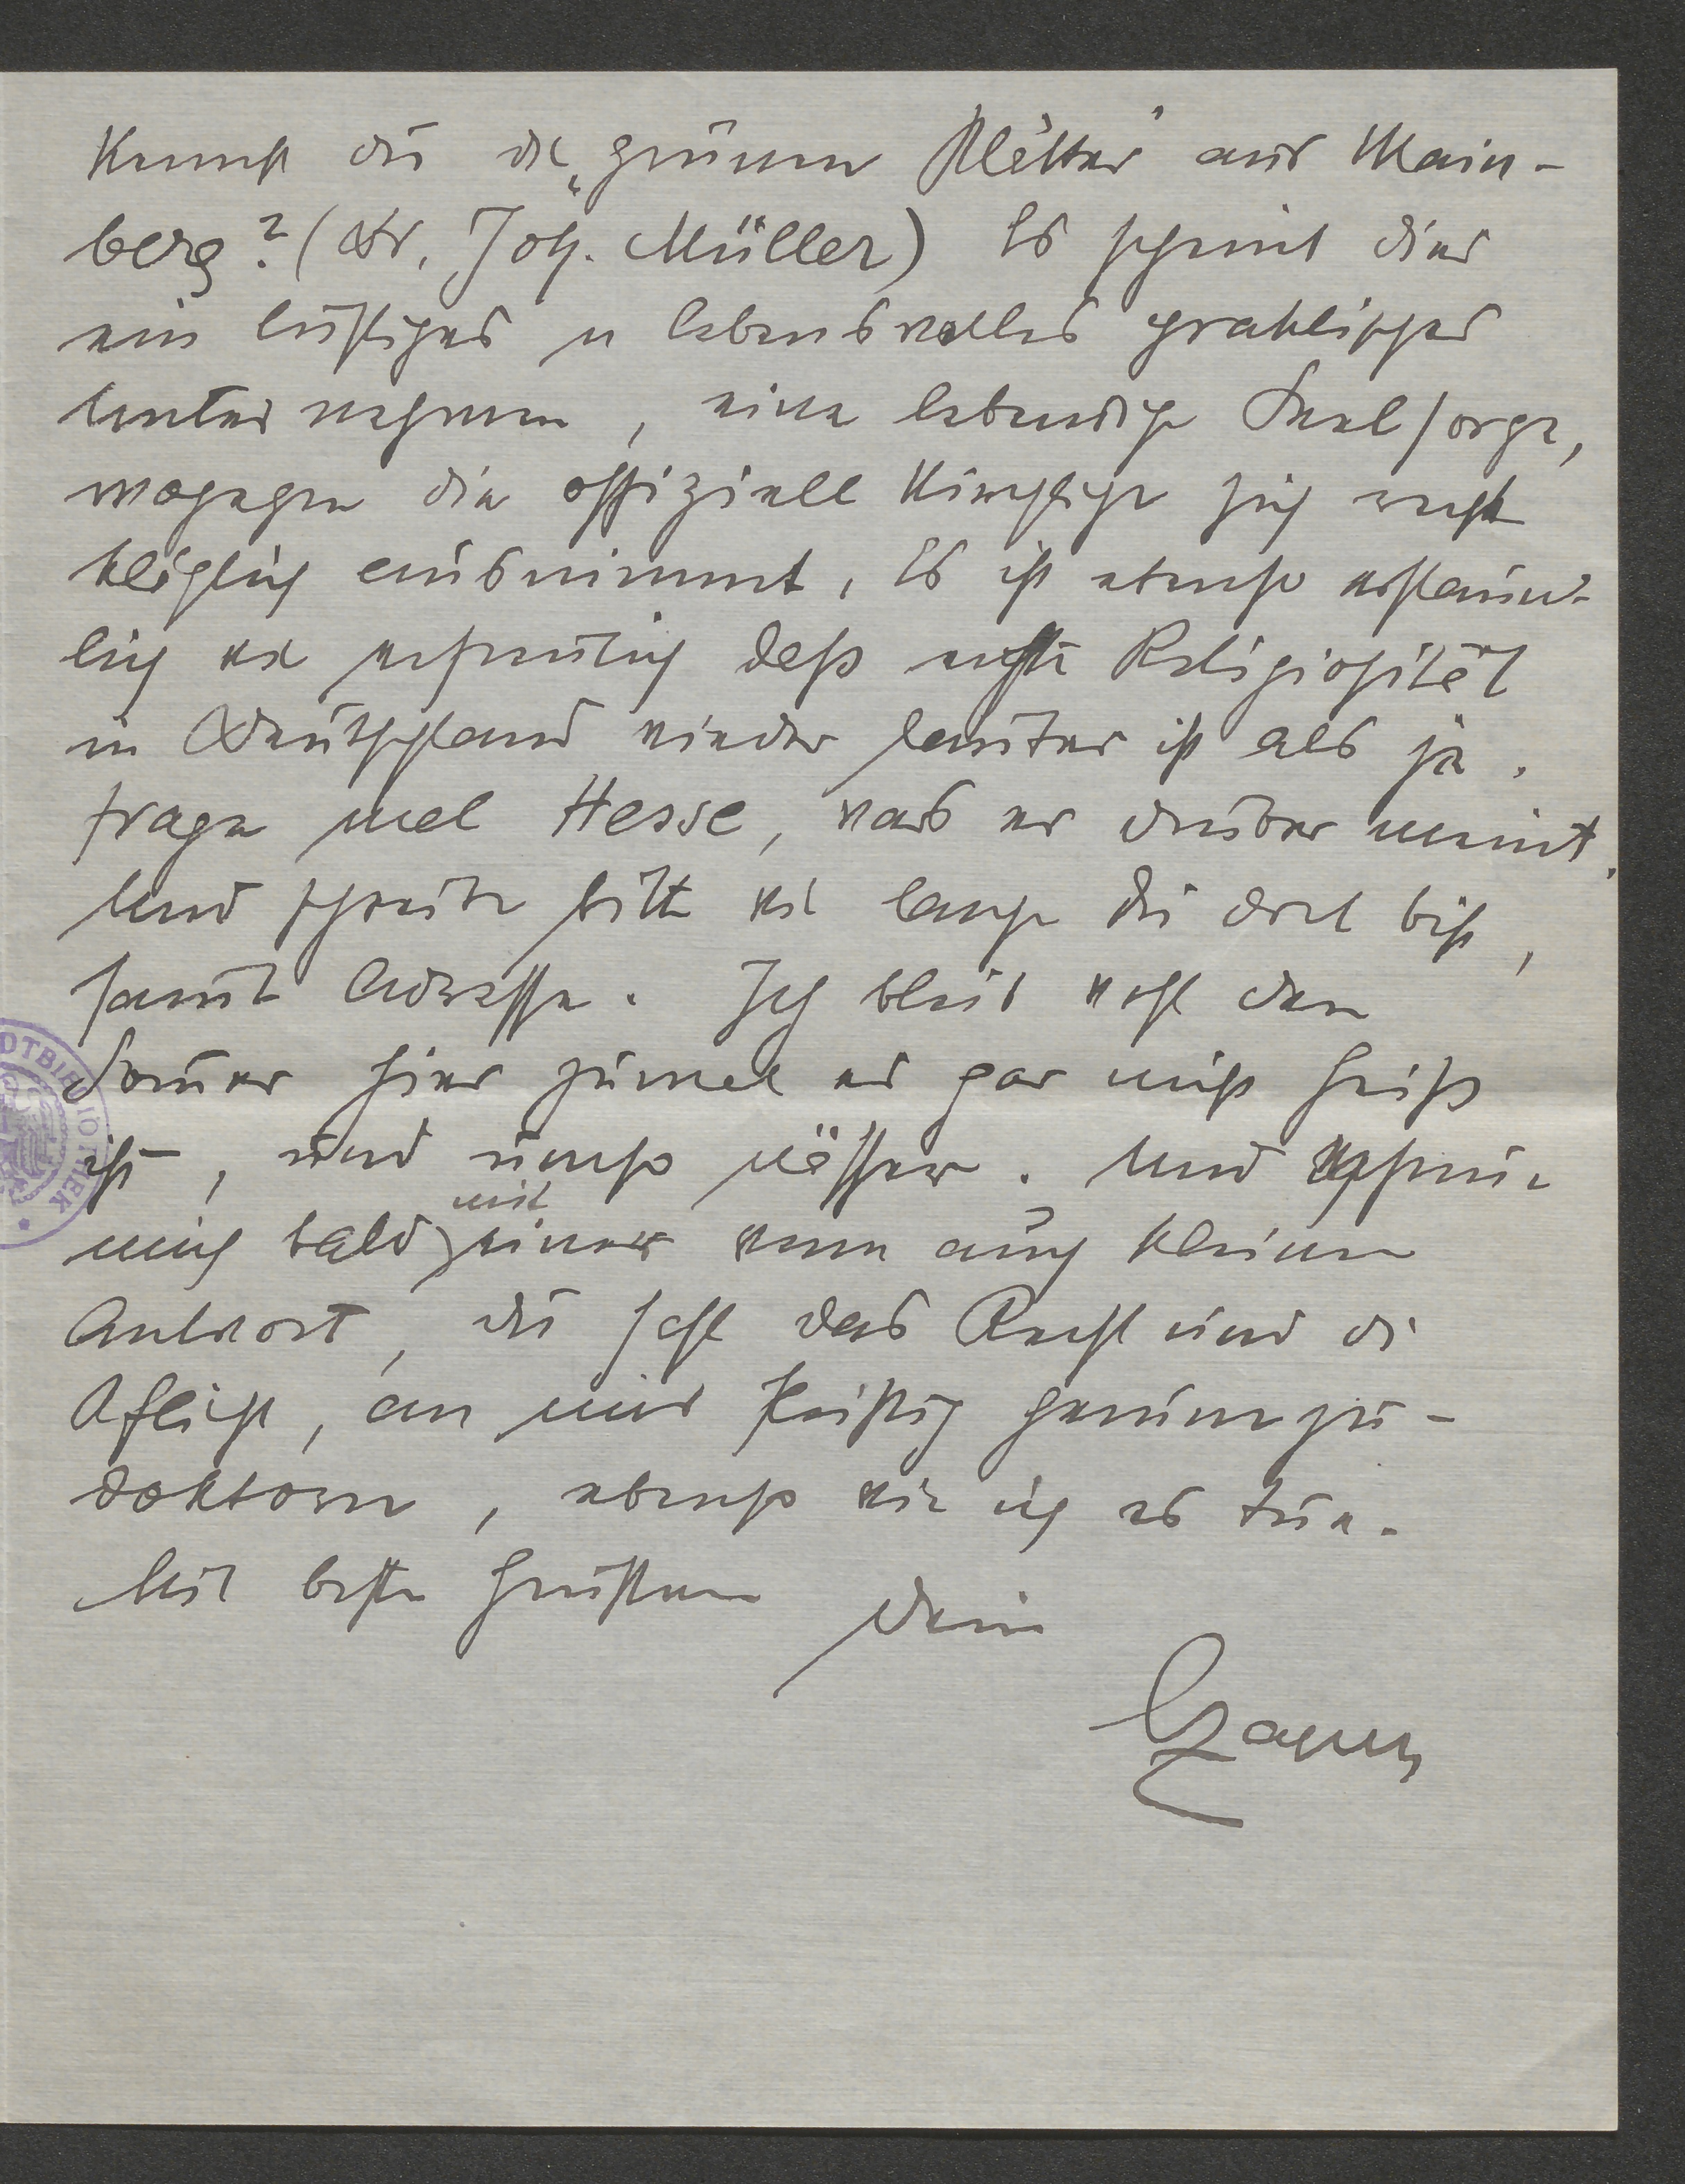 Kennst du die „grünen Blätter" aus Main-
berg? (Dr. Joh. Müller) Es scheint dies
ein lustiges u lebensvolles praktisches
Unternehmen, eine lebendige Seelsorge,
wogegen die offiziell kirchliche sich recht
kläglich ausnimmt. Es ist ebenso erstaun-
lich wie erfreulich dass echte Religiosität
in Deutschland wieder lauter ist als je.
frage mal Hesse, was er drüber meint.
Und schreibe bitte wie lange du dort bist,
samt Adresse. Ich bleib wohl den
Sommer hier zumal es gar nicht heiss
ist, und umso nässer. Und erfreue
mich bald mit einer wenn auch kleinen
Antwort, du hast das Recht und die
Pflicht, an mir fleissig herumzu-
doktorn, ebenso wie ich es tue.
Mit besten Grüssen Dein
STADTBIBLIOTHEK